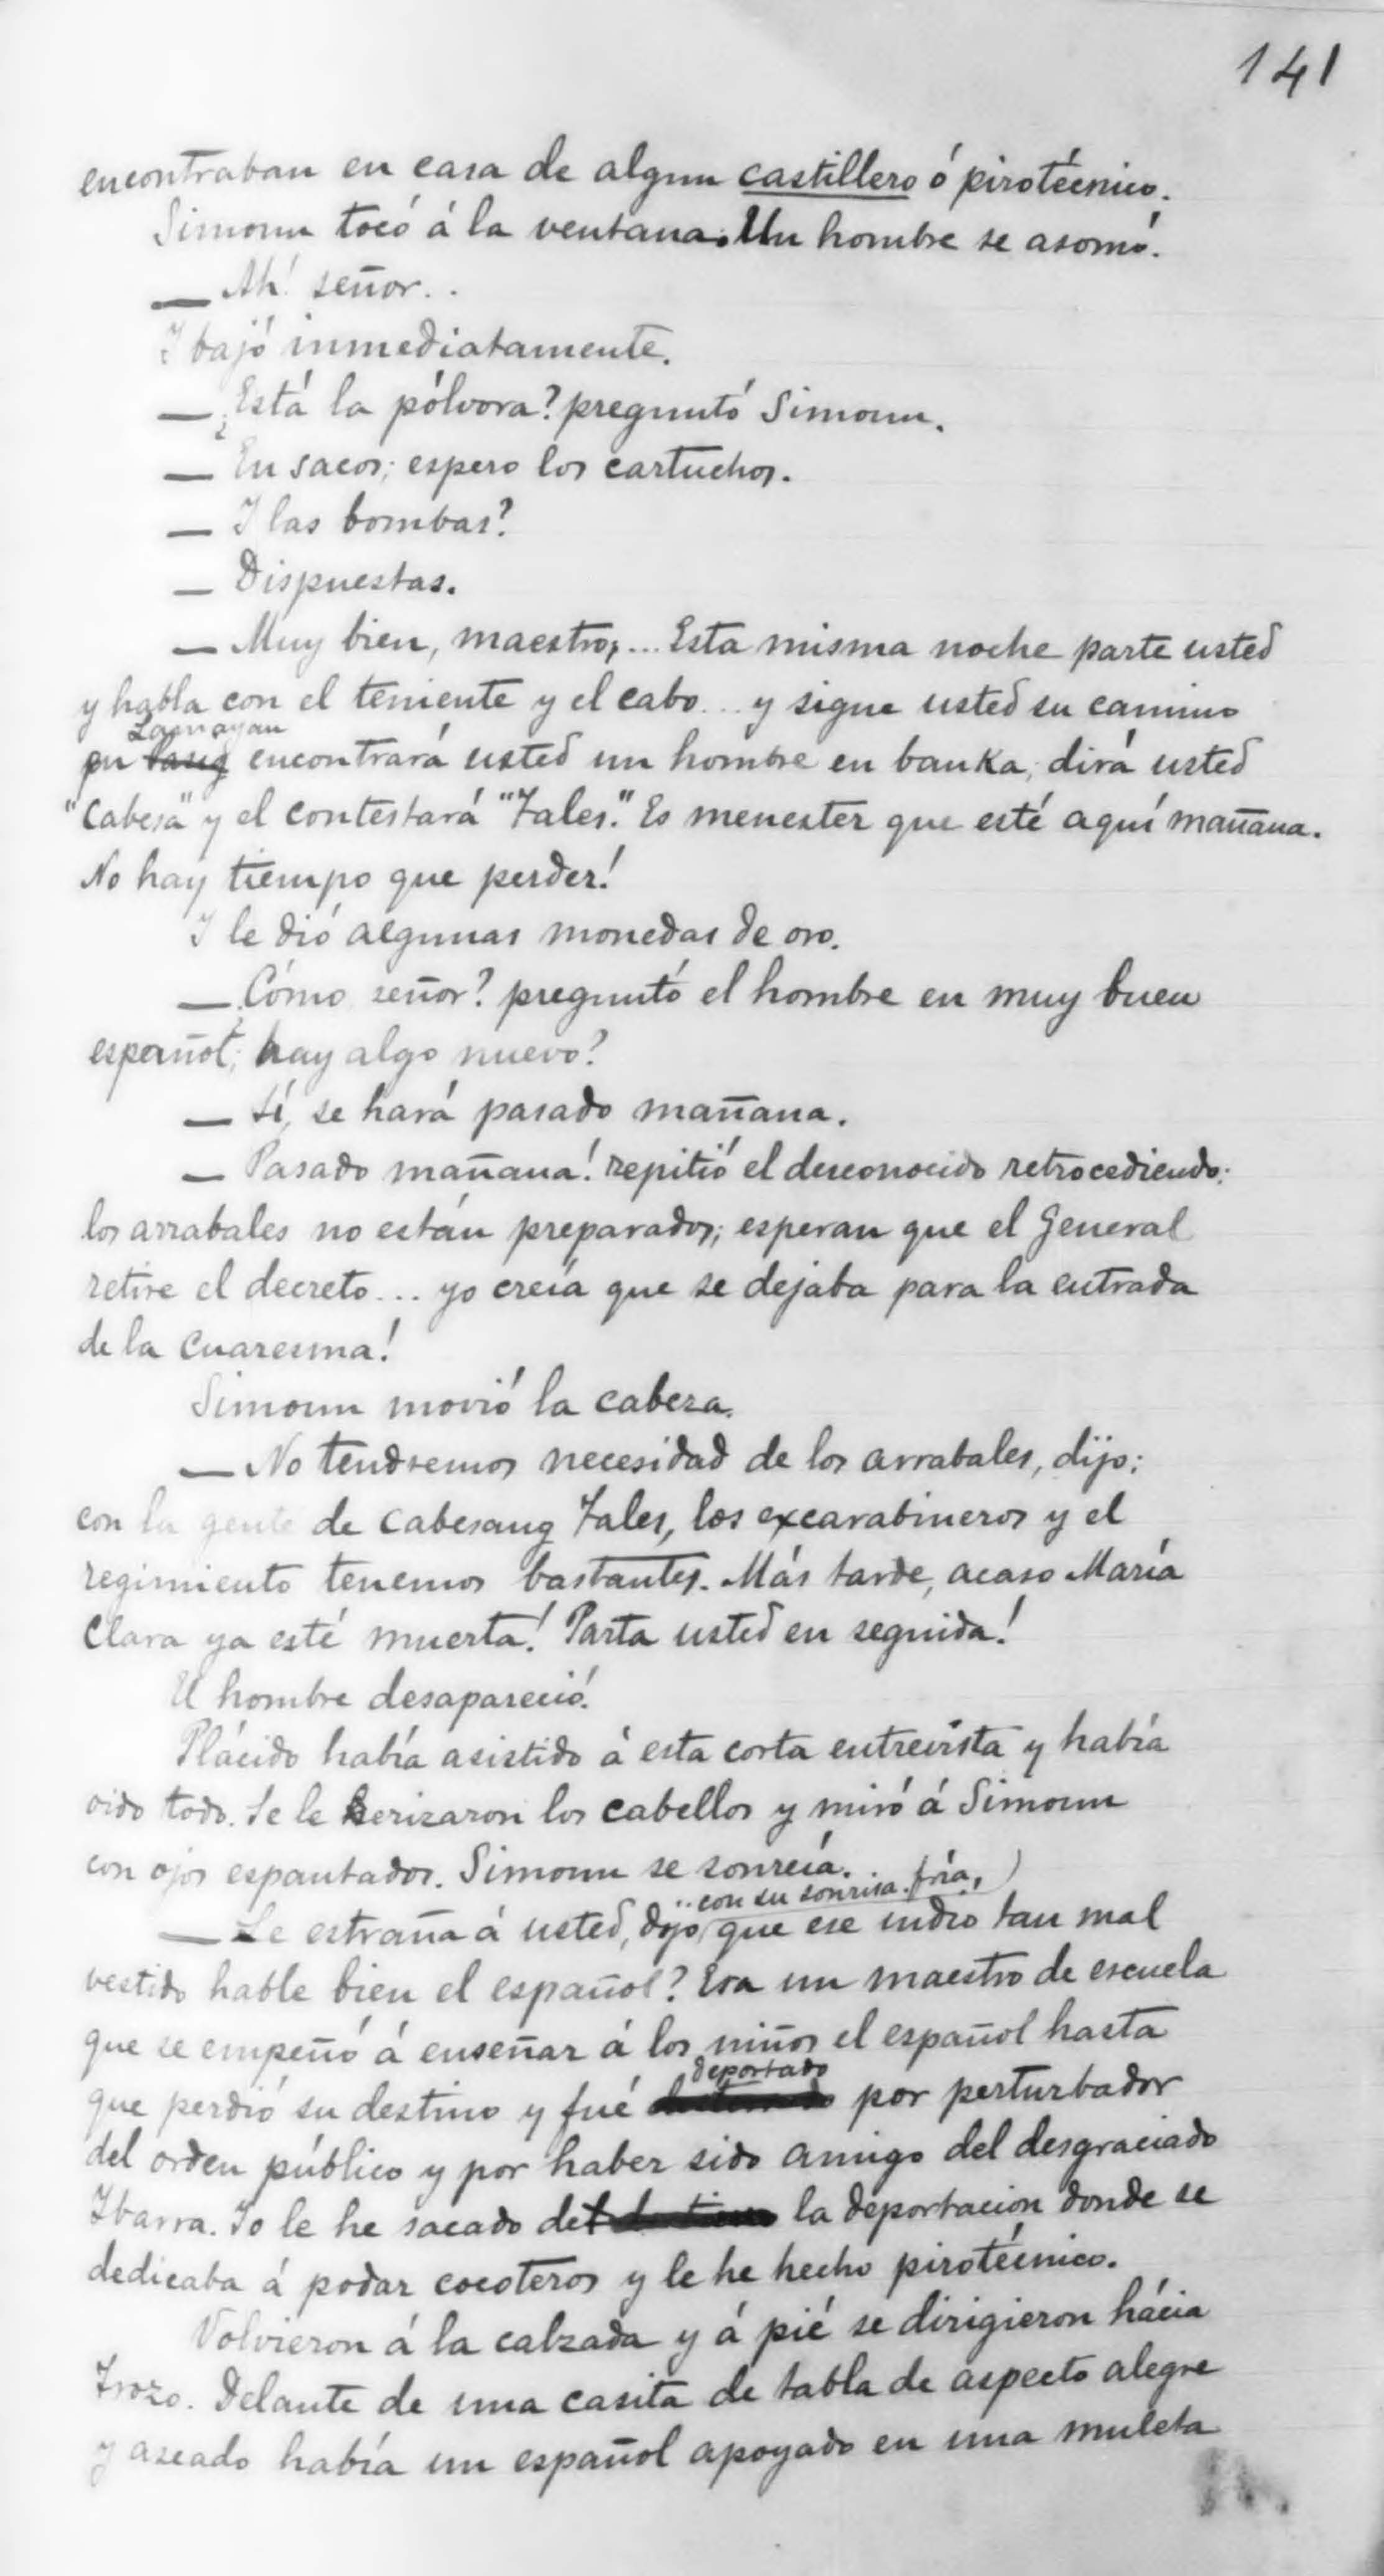 141
encontraban en casa de algun castillero ó pirotécnico.
Simoun tocó á la ventana. Un hombre se asomó.
— Ah! señor. .
I bajó inmediatamente.
— ¿Está la pólvora? preguntó Simoun.
— En sacos; espero los cartuchos.
— I las bombas?
— Dispuestas.
— Muy bien, maestro; ... Esta misma noche parte usted
y habla con el teniente y el cabo... y sigue usted su camino
Lamayan
en encontrará usted un hombre en banka; dirá usted
"Cabesa" y el contestará "Tales". Es menester que esté aquí mañana.
No hay tiempo que perder!
I le dió algunas monedas de oro.
— ¿Cómo señor? preguntó el hombre en muy buen
español; hay algo nuevo?
— Sí, se hará pasado mañana.
— Pasado mañana! repitió el desconocido retrocediendo:
los arrabales no están preparados; esperan que el General
retire el decreto... yo creía que se dejaba para la entrada
de la Cuaresma!
Simoun movió la cabeza.
— No tendremos necesidad de los arrabales, dijo;
con la gente de Cabesang Tales, los excarabineros y el
regimiento tenemos bastantes. Más tarde, acaso María
Clara ya esté muerta! Parta usted en seguida!
El hombre desapareció.
Plácido había asistido á esta corta entrevista y había
oido todo. Se le herizaron los cabellos y miró á Simoun
con ojos espantados. Simoun se sonreía.
con su sonrisa fría,
— Le estraña á usted, dijo que ese indio tan mal
vestido hable bien el español? Era un maestro de escuela
que se empeñó á enseñar á los niños el español hasta
deportado
que perdió su destino y fué por perturbador
del orden público y por haber sido amigo del desgraciado
Ibarra. Yo le he sacado de la deportacion donde se
dedicaba á podar cocoteros y le he hecho pirotécnico.
Volvieron á la calzada y á pié se dirigieron hácia
Trozo. Delante de una casita de tabla de aspecto alegre
y aseado había un español apoyado en una muleta